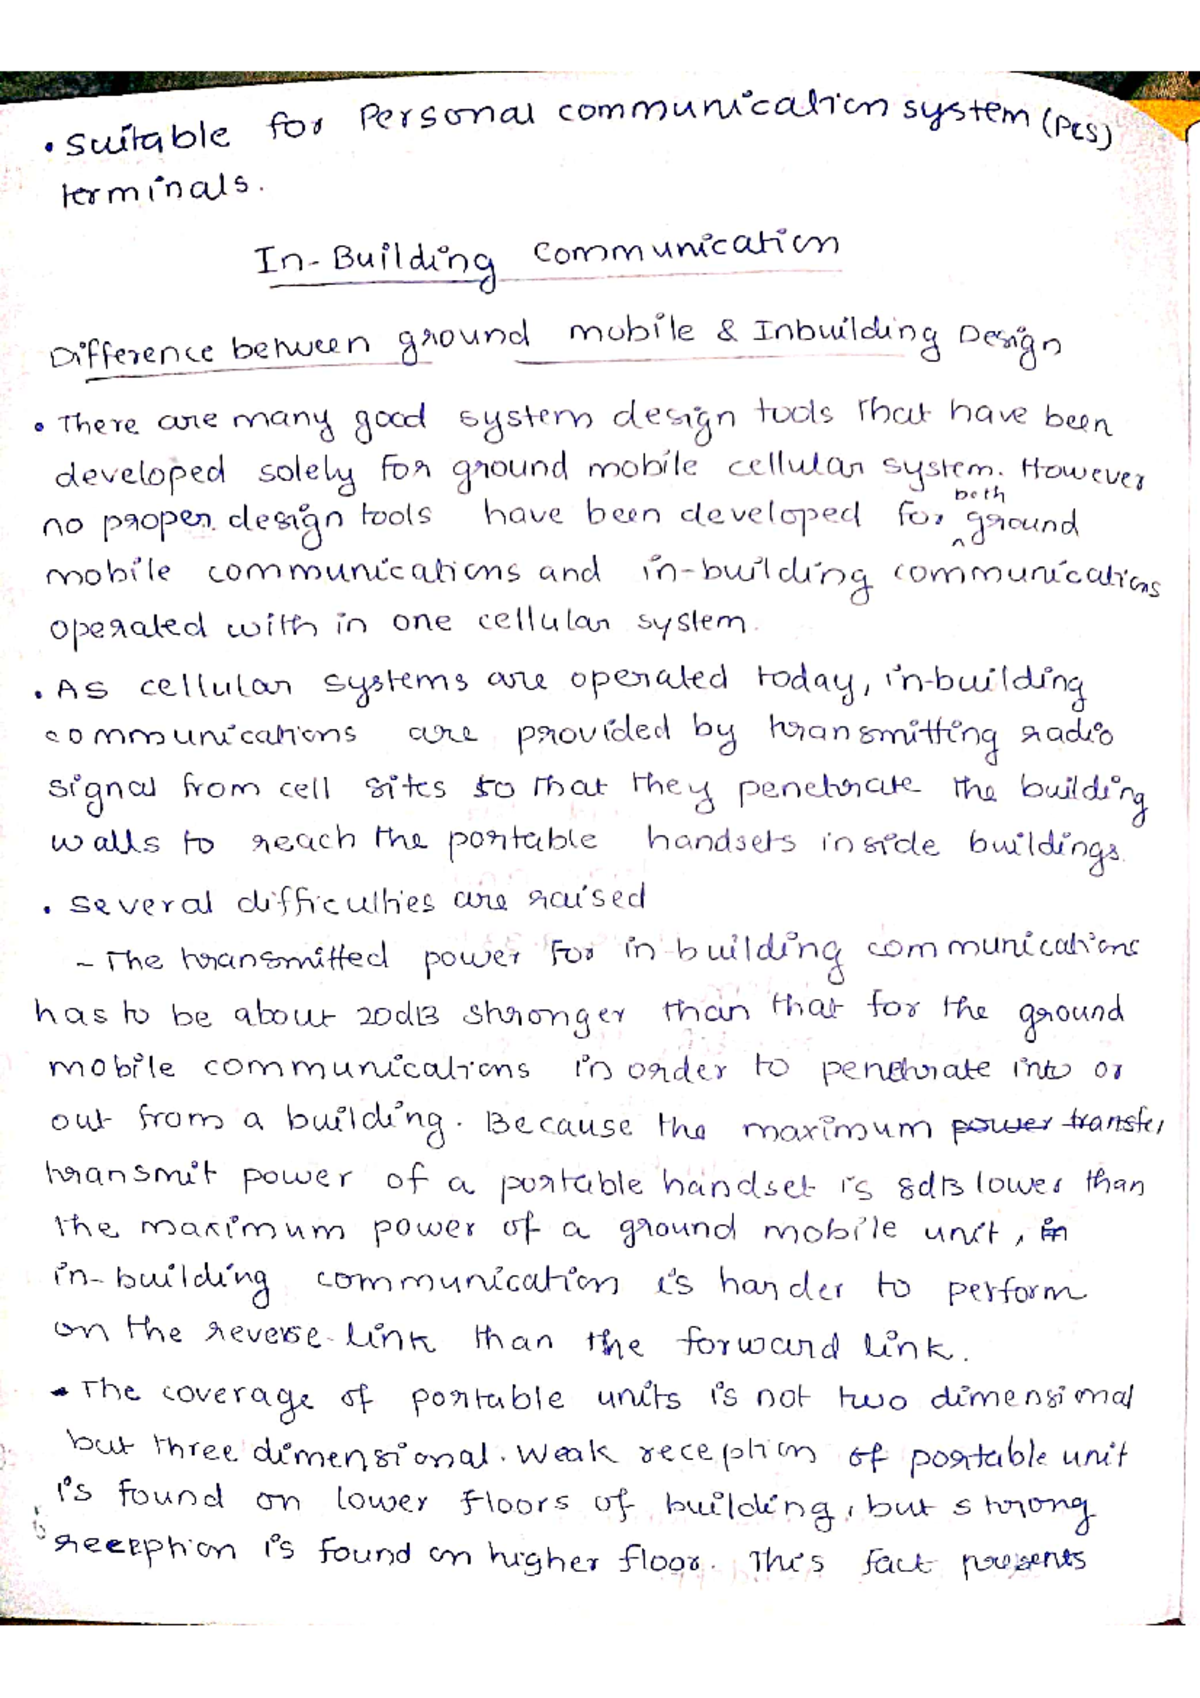 • Suitable for Personal communication system (PCS)
terminals.
In-Building Communication
Difference between ground mobile & Inbuilding Design
• There are many good system design tools that have been
developed solely for ground mobile cellular system. However
no proper design tools have been developed for both ground
mobile communications and in-building communications
operated with in one cellular system.
• As cellular systems are operated today, in-building
communications are provided by transmitting radio
signal from cell sites so that they penetrate the building
walls to reach the portable handsets inside buildings.
• Several difficulties are raised
- The transmitted power for in-building communications
has to be about 20dB stronger than that for the ground
mobile communications in order to penetrate into or
out from a building. Because the maximum power transfer
transmit power of a portable handset is 8dB lower than
the maximum power of a ground mobile unit, in
in-building communication is harder to perform
on the reverse-link than the forward link.
- The coverage of portable units is not two dimensional
but three dimensional. Weak reception of portable unit
is found on lower floors of building, but strong
reception is found on higher floor. This fact presents